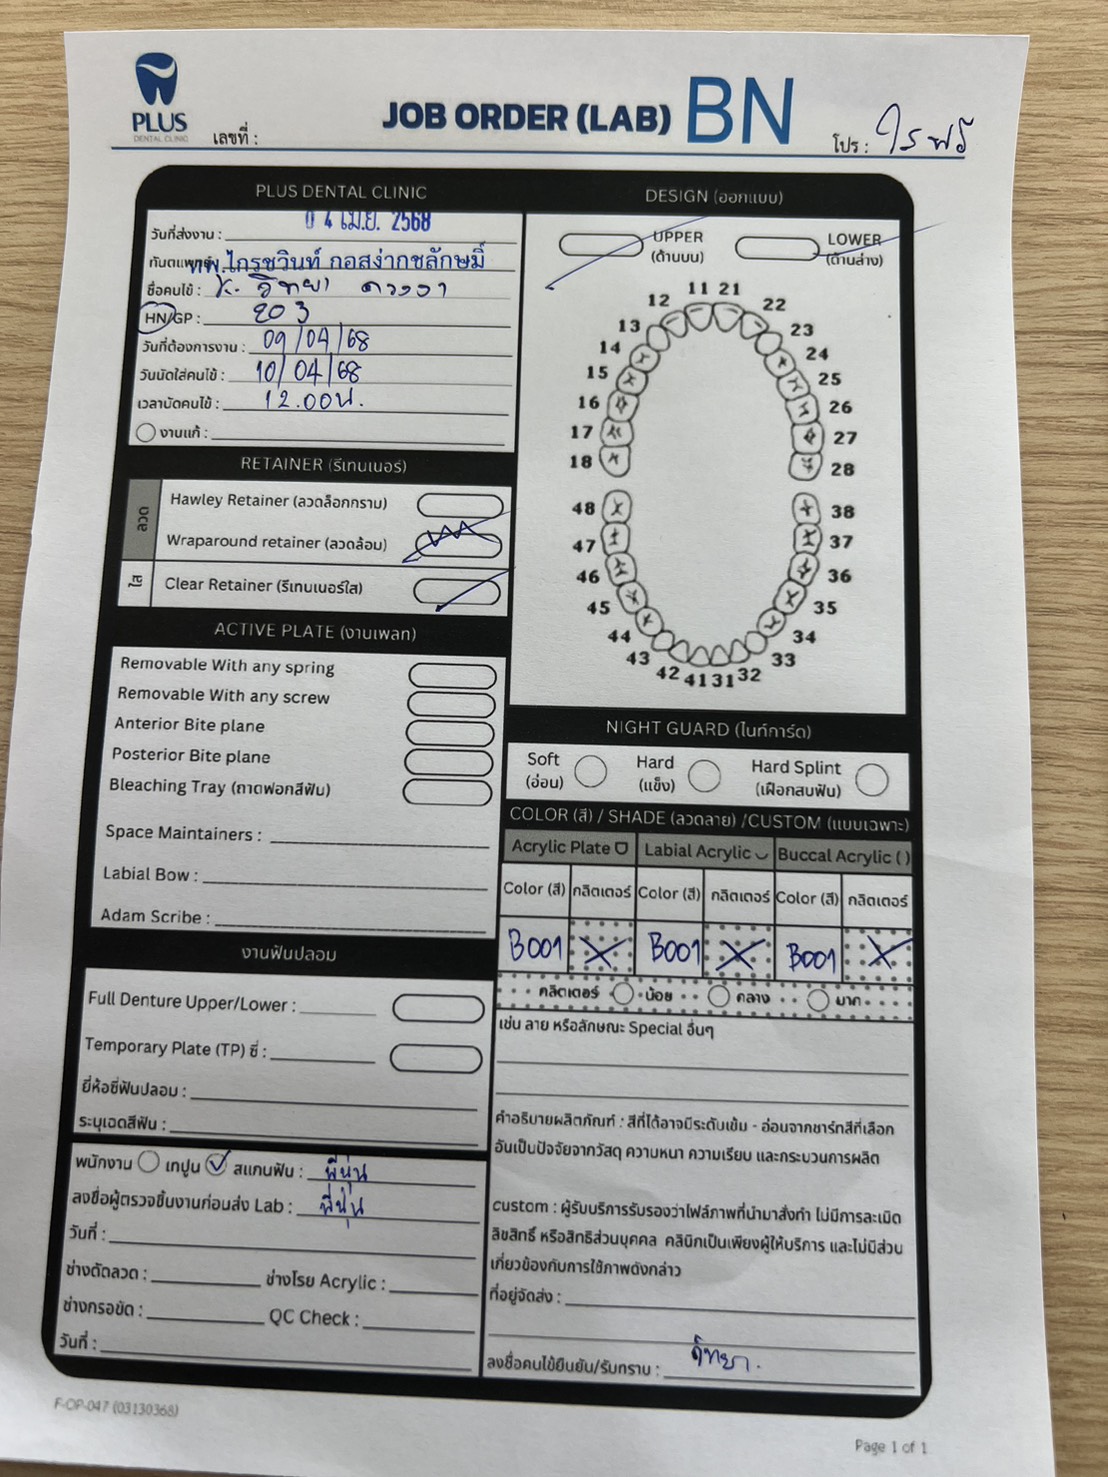 PLUS
DENTAL CLINIC
เลขที่ :
JOB ORDER (LAB) BN
โปร :
PLUS DENTAL CLINIC
วันที่ส่งงาน : 0 4 เม.ย. 2568
ทันตแพทย์ ทพ.ไกรชวินท์ กอสง่าลักษมิ์
ชื่อคนไข้ : K. วิทยา ดวงตา
HN/GP : 203
วันที่ต้องการงาน : 09/04/68
วันนัดใส่คนไข้ : 10/04/68
เวลานัดคนไข้ : 12.00น.
งานแก้ :
RETAINER (รีเทนเนอร์)
ลวด
Hawley Retainer (ลวดล็อกกราม)
Wraparound retainer (ลวดล้อม)
ใส
Clear Retainer (รีเทนเนอร์ใส)
ACTIVE PLATE (งานเพลท)
Removable With any spring
Removable With any screw
Anterior Bite plane
Posterior Bite plane
Bleaching Tray (ถาดฟอกสีฟัน)
Space Maintainers :
Labial Bow :
Adam Scribe :
งานฟันปลอม
Full Denture Upper/Lower :
Temporary Plate (TP) ซี่ :
ยี่ห้อซี่ฟันปลอม :
ระบุเฉดสีฟัน :
พนักงาน เทปูน สแกนฟัน : พี่นุ่น
ลงชื่อผู้ตรวจชิ้นงานก่อนส่ง Lab : พี่นุ่น
วันที่ :
ช่างดัดลวด : ช่างโรย Acrylic :
ช่างกรอขัด : QC Check :
วันที่ :
DESIGN (ออกแบบ)
UPPER LOWER
(ด้านบน) (ด้านล่าง)
11 21
12 22
13 23
14 24
15 25
16 26
17 27
18 28
48 38
47 37
46 36
45 35
44 34
43 33
42 41 31 32
NIGHT GUARD (ไนท์การ์ด)
Soft Hard Hard Splint
(อ่อน) (แข็ง) (เฝือกสบฟัน)
COLOR (สี) / SHADE (ลวดลาย) /CUSTOM (แบบเฉพาะ)
Acrylic Plate Labial Acrylic Buccal Acrylic ( )
Color (สี) กลิตเตอร์ Color (สี) กลิตเตอร์ Color (สี) กลิตเตอร์
B001 X B001 X B001 X
กลิตเตอร์ น้อย กลาง มาก
เช่น ลาย หรือลักษณะ Special อื่นๆ
คำอธิบายผลิตภัณฑ์ : สีที่ได้อาจมีระดับเข้ม - อ่อนจากชาร์ทสีที่เลือก
อันเป็นปัจจัยจากวัสดุ ความหนา ความเรียบ และกระบวนการผลิต
custom : ผู้รับบริการรับรองว่าไฟล์ภาพที่นำมาสั่งทำ ไม่มีการละเมิด
ลิขสิทธิ์ หรือสิทธิส่วนบุคคล คลินิกเป็นเพียงผู้ให้บริการ และไม่มีส่วน
เกี่ยวข้องกับการใช้ภาพดังกล่าว
ที่อยู่จัดส่ง :
ลงชื่อคนไข้ยืนยัน/รับทราบ : วิทยา.
F-OP-047 (03130368)
Page 1 of 1